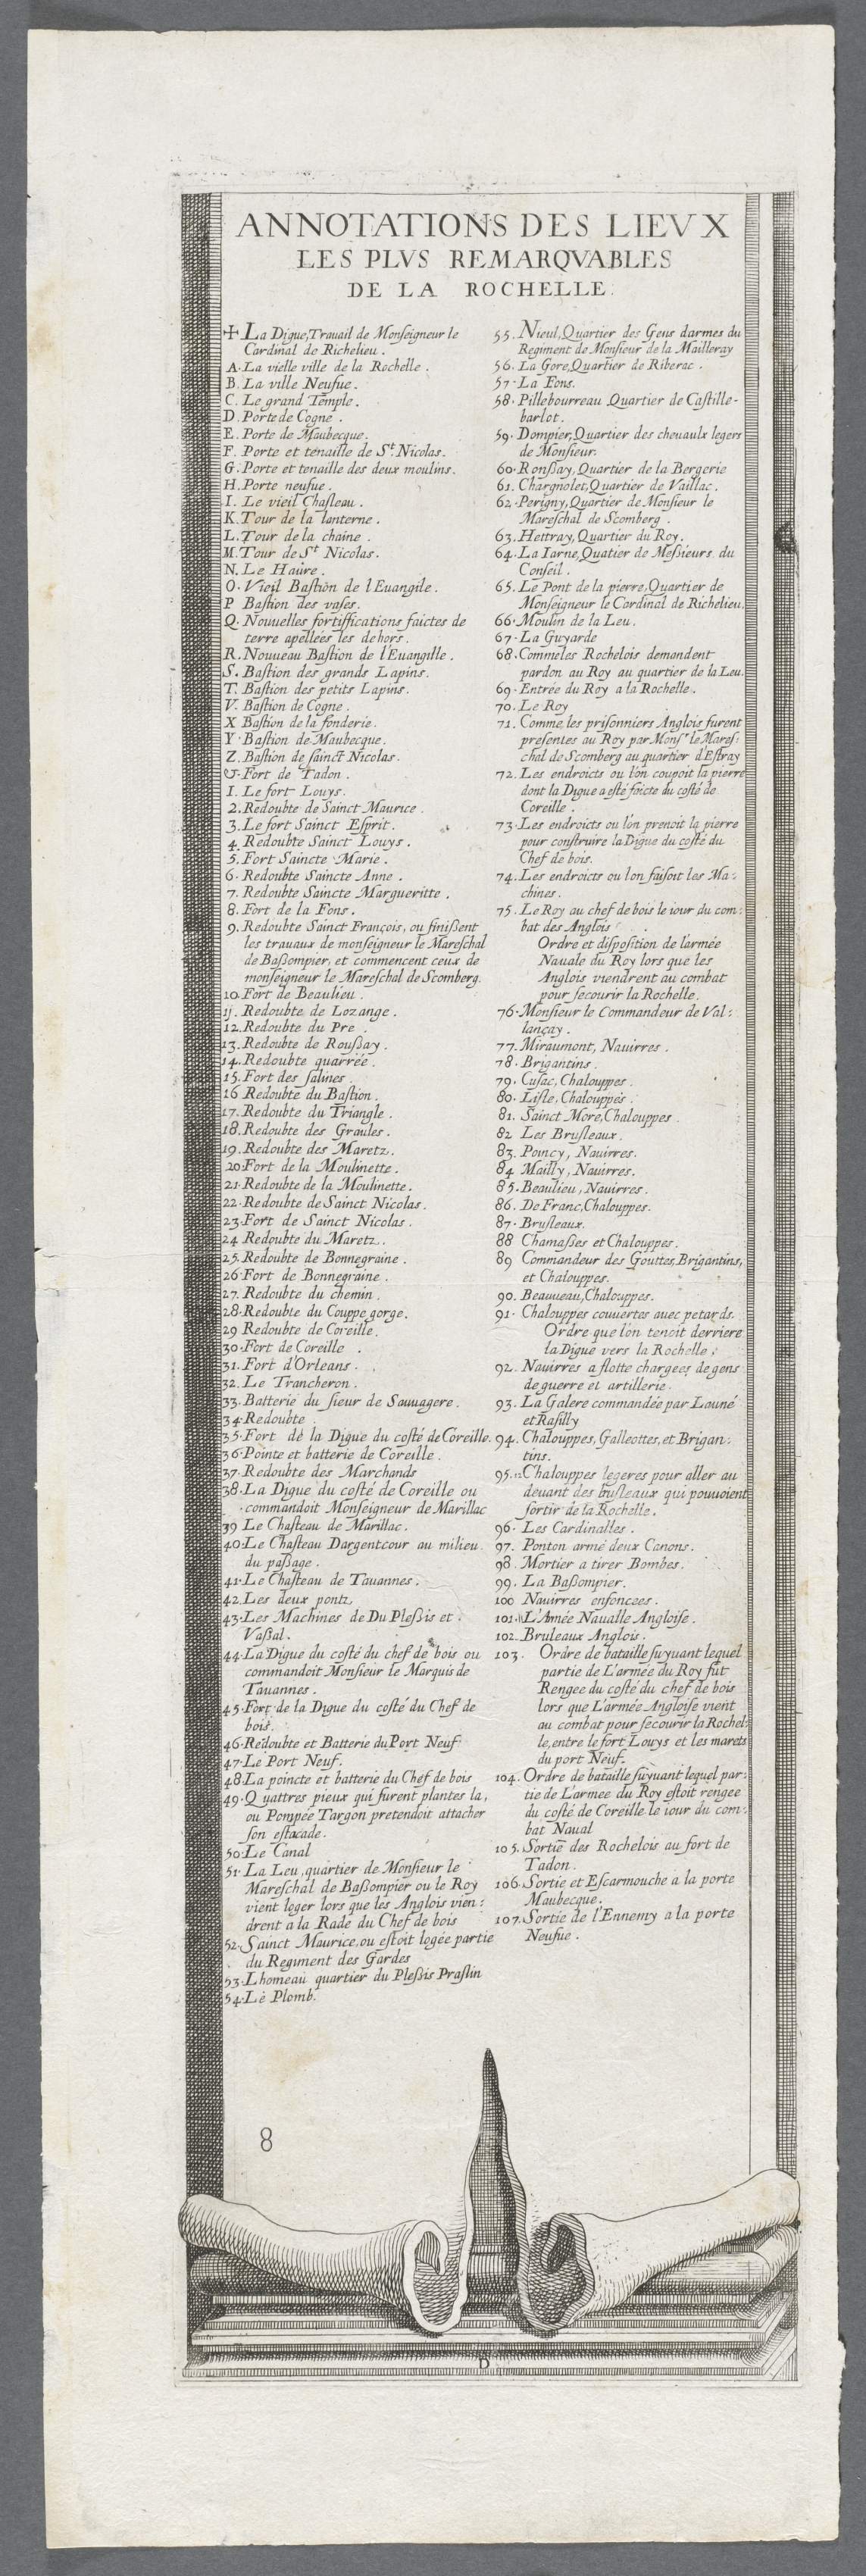 ANNOTATIONS DES LIEVX
LES PLVS REMARQVABLES
DE LA ROCHELLE.
✢ La Digue, Trauail de Monseigneur le
Cardinal de Richelieu.
A. La vielle ville de la Rochelle.
B. La ville Neufue.
C. Le grand Temple.
D. Porte de Cogne.
E. Porte de Maubecque.
F. Porte et tenaille de St Nicolas.
G. Porte et tenaille des deux moulins.
H. Porte neufue.
I. Le vieil Chasteau.
K. Tour de la lanterne.
L. Tour de la chaine.
M. Tour de St Nicolas.
N. Le Haure.
O. Vieil Bastion de l'Euangile.
P Bastion des vases.
Q. Nouuelles fortiffications faictes de
terre apellées les dehors.
R. Nouueau Bastion de l'Euangille.
S. Bastion des grands Lapins.
T. Bastion des petits Lapins.
V. Bastion de Cogne.
X Bastion de la fonderie.
Y. Bastion de Maubecque.
Z. Bastion de sainct Nicolas.
&. Fort de Tadon.
1. Le fort Louys.
2. Redoubte de Sainct Maurice.
3. Le fort Sainct Esprit.
4. Redoubte Sainct Louys.
5. Fort Saincte Marie.
6. Redoubte Saincte Anne.
7. Redoubte Saincte Margueritte.
8. Fort de la Fons.
9. Redoubte Sainct François, ou finißent
les trauaux de monseigneur le Mareschal
de Baßompier, et commencent ceux de
monseigneur le Mareschal de Scomberg.
10. Fort de Beaulieu.
11. Redoubte de Lozange.
12. Redoubte du Pre.
13. Redoubte de Roußay.
14. Redoubte quarrée.
15. Fort des salines.
16 Redoubte du Bastion.
17. Redoubte du Triangle.
18. Redoubte des Graules.
19. Redoubte des Maretz.
20. Fort de la Moulinette.
21. Redoubte de la Moulinette.
22. Redoubte de Sainct Nicolas.
23. Fort de Sainct Nicolas.
24 Redoubte du Maretz.
25. Redoubte de Bonnegraine.
26. Fort de Bonnegraine.
27. Redoubte du chemin.
28. Redoubte du Couppe gorge.
29 Redoubte de Coreille.
30. Fort de Coreille.
31. Fort d'Orleans.
32. Le Trancheron.
33. Batterie du sieur de Sauuagere.
34. Redoubte
35. Fort de la Digue du costé de Coreille.
36. Pointe et batterie de Coreille.
37. Redoubte des Marchands
38. La Digue du costé de Coreille ou
commandoit Monseigneur de Marillac
39 Le Chasteau de Marillac.
40. Le Chasteau Dargentcour au milieu
du paßage.
41. Le Chasteau de Tauannes.
42. Les deux pontz,
43. Les Machines de Du Pleßis et
Vaßal.
44. La Digue du costé du chef de bois ou
commandoit Monsieur le Marquis de
Tauannes.
45. Fort de la Digue du costé du Chef de
bois.
46. Redoubte et Batterie du Port Neuf
47. Le Port Neuf.
48. La poincte et batterie du Chef de bois
49. Quattres pieux qui furent plantes la,
ou Pompée Targon pretendoit attacher
son estacade.
50. Le Canal
51. La Leu, quartier de Monsieur le
Mareschal de Baßompier ou le Roy
vient loger lors que les Anglois vien:
drent a la Rade du Chef de bois
52. Sainct Maurice, ou estoit logée partie
du Regiment des Gardes
53. Lhomeau quartier du Pleßis Praslin
54. Le Plomb.
55. Nieul, Quartier des Gens darmes du
Regiment de Monsieur de la Mailleray
56. La Gore, Quartier de Riberac.
57. La Fons.
58. Pillebourreau Quartier de Castille-
barlot.
59. Dompier, Quartier des cheuaulx legers
de Monsieur.
60. Ronßay, Quartier de la Bergerie
61. Chargnolet, Quartier de Vaillac.
62. Perigny, Quartier de Monsieur le
Mareschal de Scomberg.
63. Hettray, Quartier du Roy.
64. La Iarne, Quatier de Meßieurs du
Conseil.
65. Le Pont de la pierre, Quartier de
Monseigneur le Cardinal de Richelieu.
66. Moulin de la Leu.
67. La Guyarde
68. Comme les Rochelois demandent
pardon au Roy au quartier de la Leu.
69. Entrée du Roy a la Rochelle.
70. Le Roy
71. Comme les prisonniers Anglois furent
presentes au Roy par Monsr le Mares:
chal de Scomberg au quartier d'Estray
72. Les endroicts ou l'on coupoit la pierre
dont la Digue a esté faicte du costé de
Coreille.
73. Les endroicts ou l'on prenoit la pierre
pour construire la Digue du costé du
Chef de bois.
74. Les endroicts ou lon faisoit les Ma:
chines.
75. Le Roy au chef de bois le iour du com:
bat des Anglois
Ordre et disposition de l'armée
Nauale du Roy lors que les
Anglois viendrent au combat
pour secourir la Rochelle.
76. Monsieur le Commandeur de Val:
lançay.
77. Miraumont, Nauirres.
78. Brigantins.
79. Cusac, Chalouppes.
80. Lisle, Chalouppes.
81. Sainct More, Chalouppes
82 Les Brusleaux.
83. Poincy, Nauirres.
84 Mailly, Nauirres.
85. Beaulieu, Nauirres.
86. De Franc, Chalouppes.
87. Brusleaux.
88 Chamaßes et Chalouppes.
89 Commandeur des Gouttes, Brigantins,
et Chalouppes.
90. Beauueau, Chalouppes.
91. Chalouppes couuertes auec petards.
Ordre que l'on tenoit derriere
la Digue vers la Rochelle:
92. Nauirres a flotte chargees de gens
de guerre et artillerie.
93. La Galere commandée par Launé
et Rasilly
94. Chalouppes, Galleottes, et Brigan:
tins.
95. Chalouppes legeres pour aller au
deuant des busleaux qui pouuoient
sortir de la Rochelle.
96. Les Cardinalles.
97. Ponton armé deux Canons.
98. Mortier a tirer Bombes.
99. La Baßompier.
100 Nauirres enfoncees.
101. L'Amée Naualle Angloise.
102. Bruleaux Anglois.
103. Ordre de bataille suyuant lequel
partie de L'armée du Roy fut
Rengee du costé du chef de bois
lors que L'armée Angloise vient
au combat pour secourir la Rochel:
le, entre le fort Louys et les marets
du port Neuf.
104. Ordre de bataille suyuant lequel par:
tie de L'armee du Roy estoit rengee
du costé de Coreille le iour du com:
bat Naual
105. Sortie des Rochelois au fort de
Tadon.
106. Sortie et Escarmouche a la porte
Maubecque.
107. Sortie de l'Ennemy a la porte
Neufue.
8
D